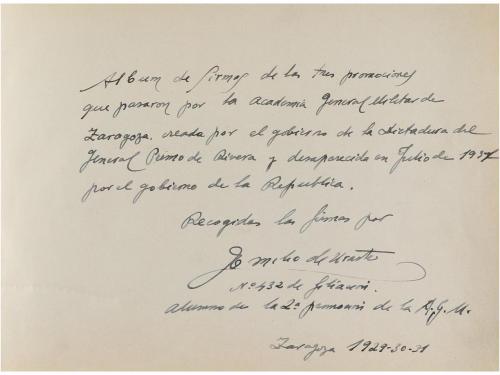 Album de firmas de las tres promociones
que pasaron por la Academia General Militar de
Zaragoza, creada por el gobierno de la Dictadura del
General Primo de Rivera y desaparecida en Julio de 1931
por el gobierno de la Republica.
Recogidas las firmas por
Emilio de
Nº 432 de filiación.
alumno de la 2ª promoción de la A.G.M.
Zaragoza 1929-30-31